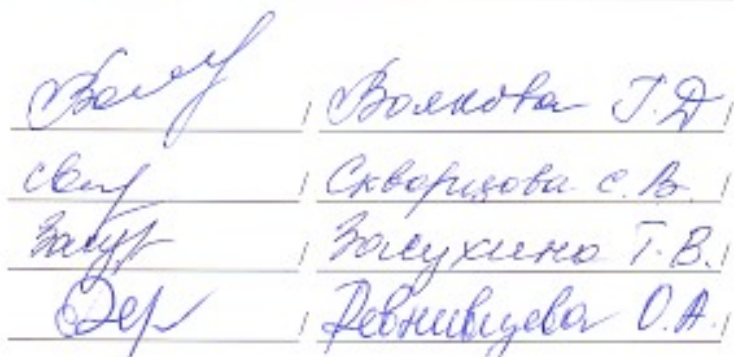 / Волкова Г.Д /
/ Скворцова С.В. /
/ Засухина Т.В. /
/ Ревнивцева О.А. /